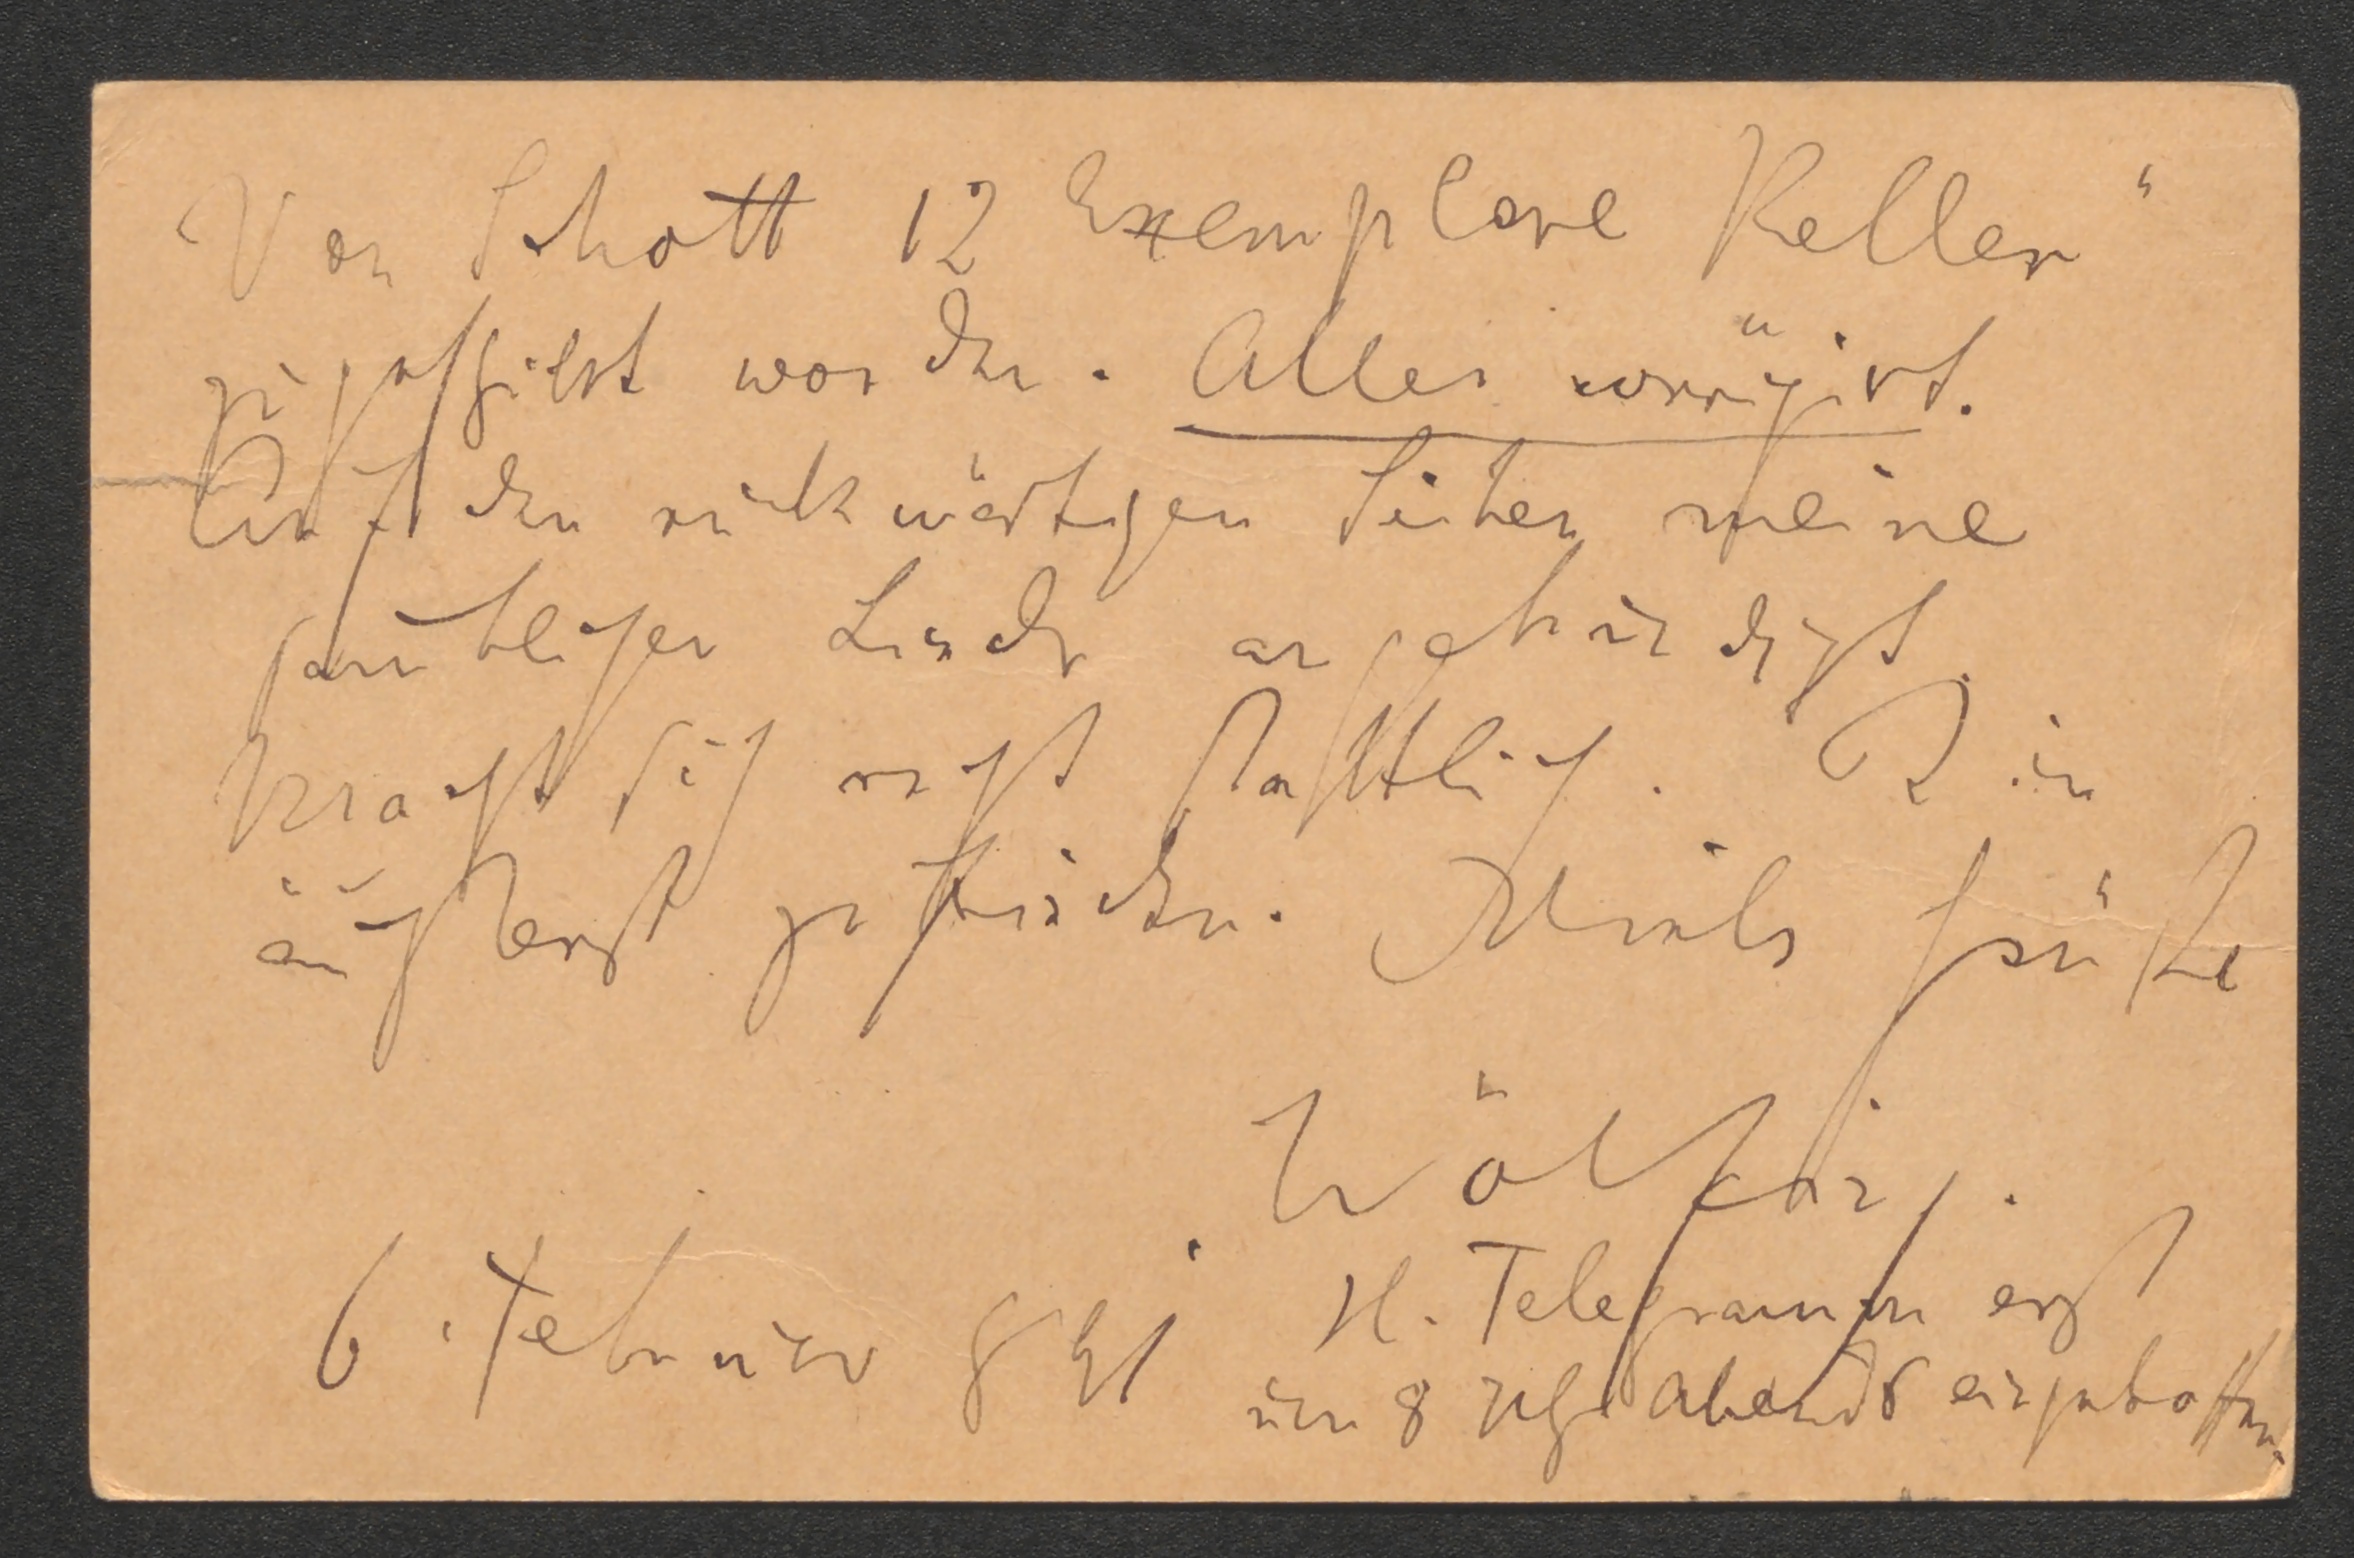 Von Schott 12 Exemplare Keller"
zugeschickt worden. Alles corrigirt.
Auf den rückwärtigen Seiten meine
sämtlichen Lieder angekündigt.
Macht sich recht stattlich. Bin
äußerst zufrieden. Viele Grüße
Wölfing.
6. Februar 91 N. Telegramm erst
um 8 Uhr Abends eingetroffen.